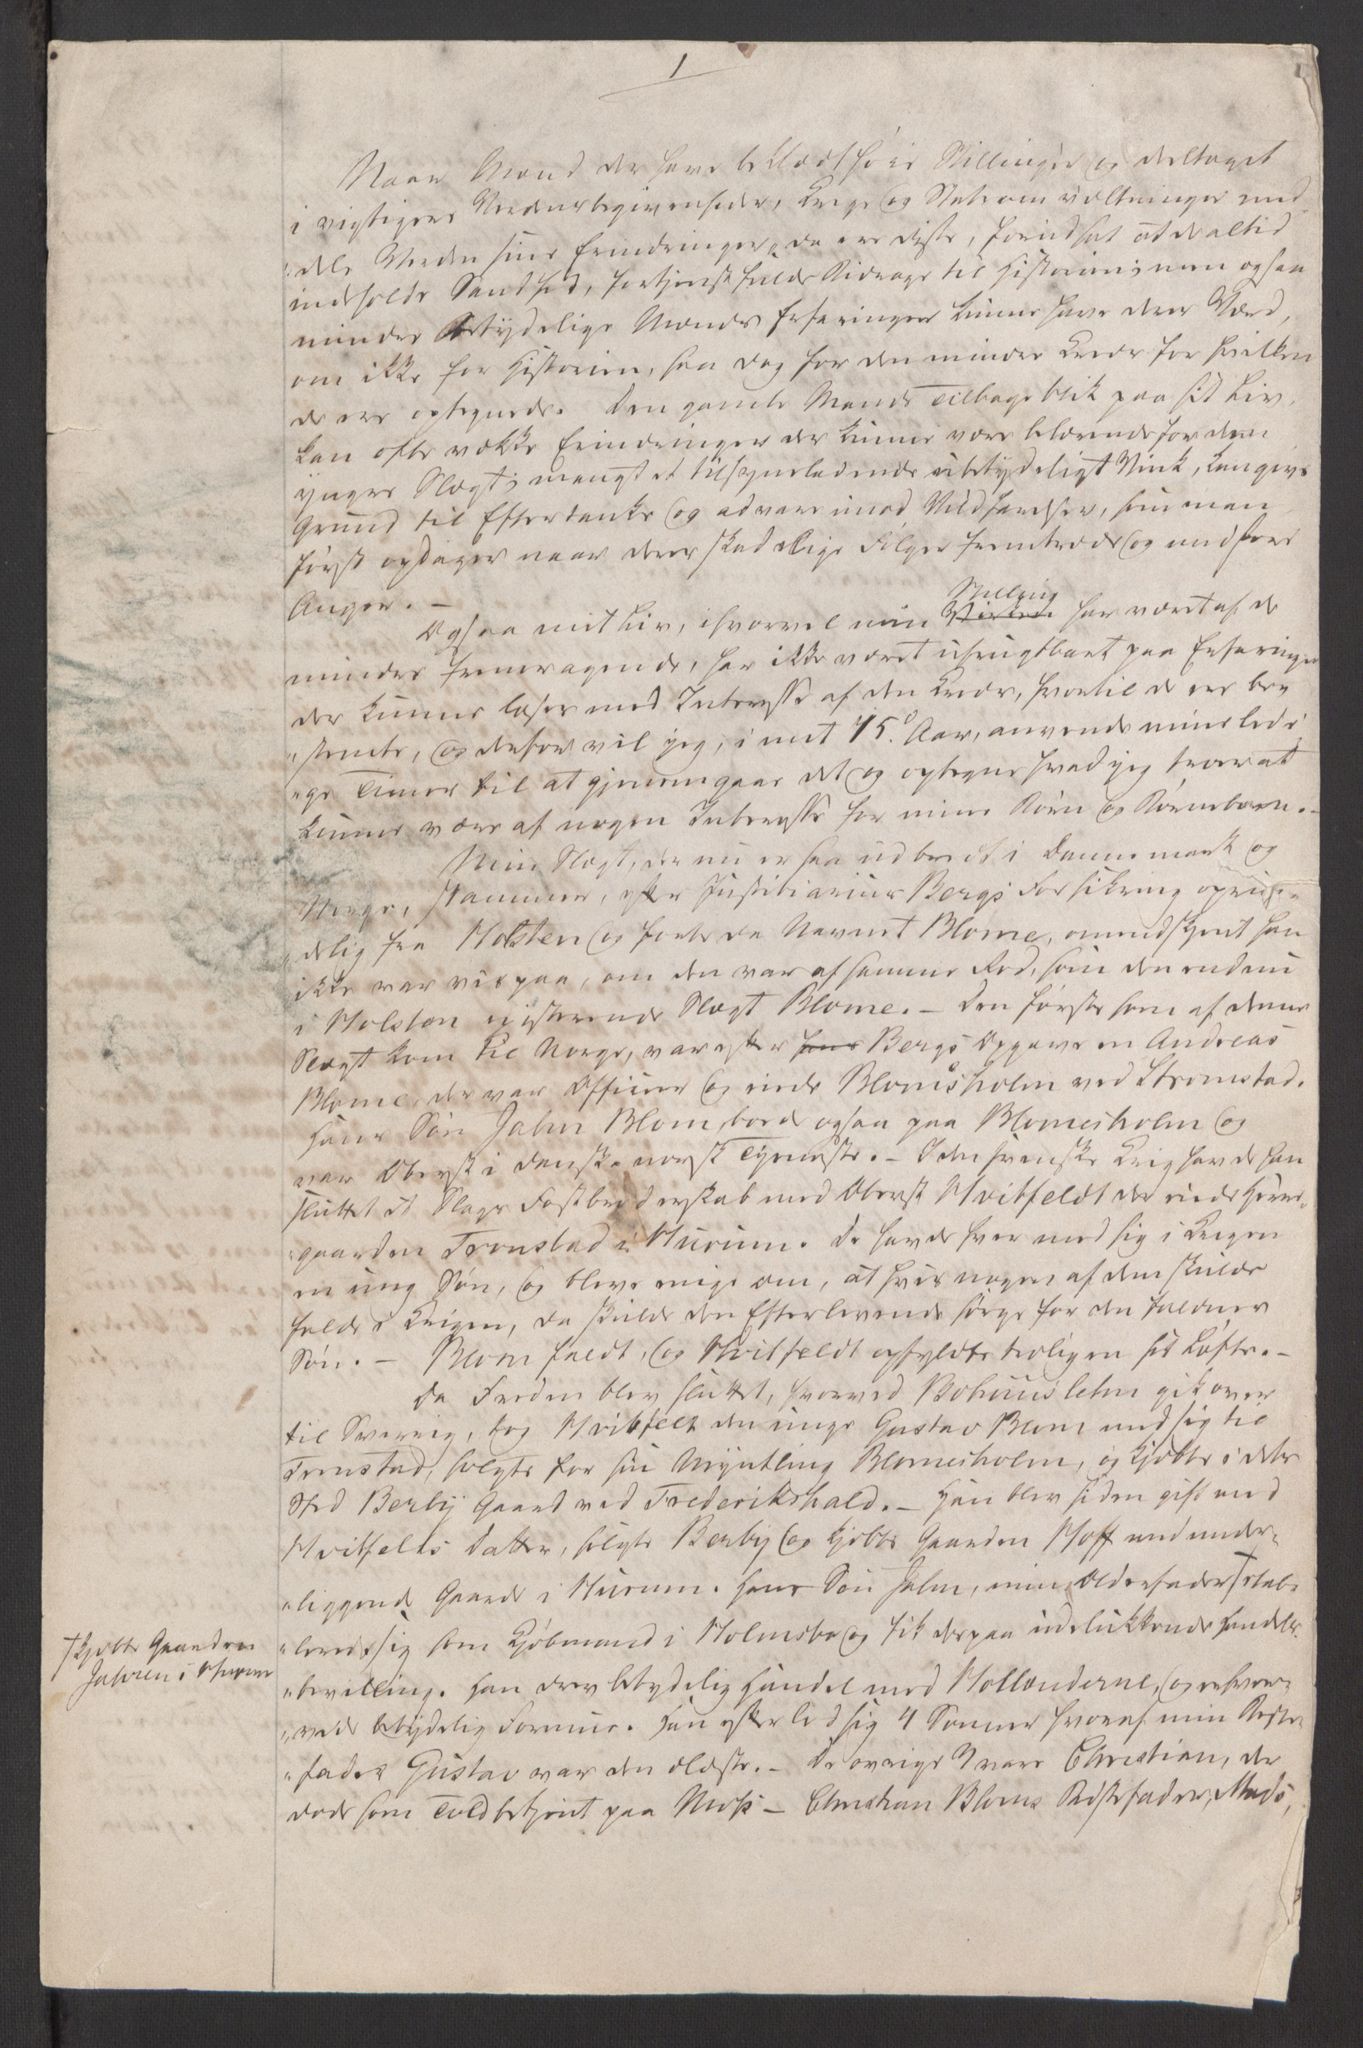 1
Naar Mænd der have beklædt høie Stillinger og deeltaget
i vigtigere Verdensbegivenheder, Krige og Statsomvæltninger med-
„dele Verden sine Erindringer, da ere disse, forudsat at de altid
indeholde Sandhed, fortjenstfulde Bidrage til Historien; men ogsaa
mindre betydelige Mænds Erfaringer kunne have deres Værd,
om ikke for Historien, saa dog for den mindre Kreds for hvilken
de ere optegnede. Den gamle Mands Tilbageblik paa sit Liv,
kan ofte vække Erindringer der kunne være belærende for den
yngre Slægt; mangt et tilsyneladende ubetydeligt Vink, kan give
Grund til Eftertanke og advare imod Vildfarelser, som man
først opdager naar deres skadelige Følger fremtræde og medføre
Anger. —
Ogsaa mit Liv, ihvorvel min Stilling har været af de
mindre fremragende, har ikke været ufrugtbart paa Erfaringer
der kunne læses med Interesse af den Kreds, hvortil de ere be-
„stemte, og derfor vil jeg, i mit 75d Aar, anvende mine ledi-
„ge Timer til at gjennemgaae det og optegne hvad jeg troer at
kunne være af nogen Interesse for mine Børn og Børnebørn. —
Min Slægt, der nu er saa udbredt i Dannemark og
Norge, stammer, efter Justitiarius Bergs Forsikring oprin-
„delig fra Holsten og førte da Navnet Blome, omendskjønt han
ikke var vis paa, om den var af samme Rod, som den endnu
i Holsten existerende Slægt Blome. — Den første som af denne
Slægt kom til Norge, var efter hans Bergs Opgave en Andreas
Blome, der var Officier og eiede Blomsholm ved Strømstad.
Hans Søn Jahn Blom, boede ogsaa paa Blomesholm og
var Oberst i dansk-norsk Tjeneste. — I den svenske Krig havde han
sluttet et Slags Fostbroderskab med Oberst Hvitfeldt der eiede Herre-
„gaarden Tronstad i Hurum. De havde hver med sig i Krigen
en ung Søn, og bleve enige om, at hvis nogen af dem skulde
falde i Krigen, da skulde den Efterlevende sørge for den faldnes
Søn. — Blom faldt, og Hvitfeldt opfyldte troligen sit Løfte. —
Da Freden blev sluttet, hvorved Bohuuslehn gik over
til Sverrig, tog Hvitfelt den unge Gustav Blom med sig til
Tronstad, solgte for sin Myntling Blomesholm, og kjøbte i dets
Sted Berby Gaard ved Frederikshald. — Han blev siden gift med
Hvitfelds Datter, solgte Berby og kjøbte Gaarden Hoff med under-
„liggende Gaarde i Hurum. Hans Søn Jahn, min Oldefader † etab-
„lerede sig som Kjøbmand i Holmsbo og fik derpaa udelukkende Handels-
„bevilling. Han drev betydelig Handel med Hollænderne, og erhver-
„vede betydelig Formue. Han efterlod sig 4 Sønner hvoraf min Beste-
„fader Gustav var den ældste. — De øvrige 3 vare Christian, der
døde som Toldbetjent paa Moss — Christian Bloms Bestefader, Mads,
† kjøbte Gaarden
Jahren i Hurum